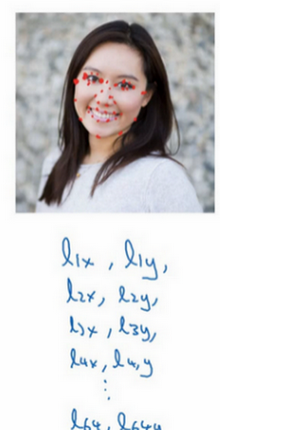 l1x, l1y,
l2x, l2y,
l3x, l3y,
l4x, l4y
⋮
l64, l64y